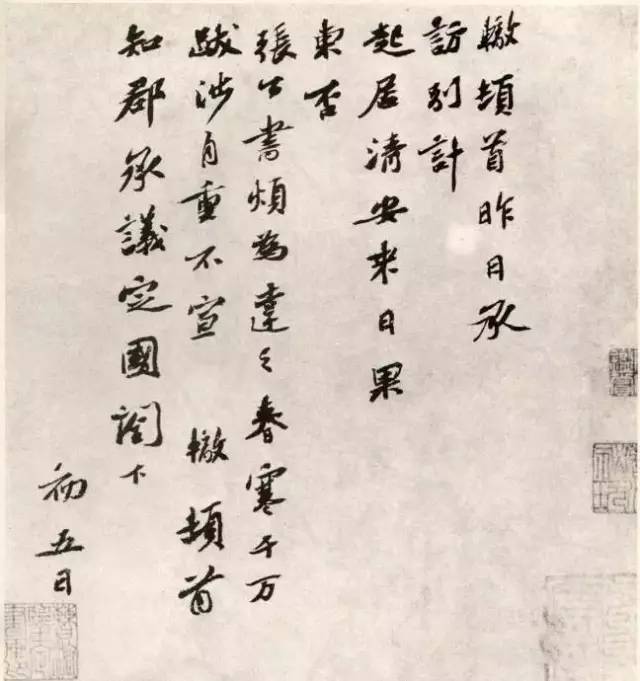 轍頓首昨日承
訪別計
起居清安來日果
東否
張公書煩為達之春寒千万
跋涉自重不宣　轍頓首
知郡承議定國閤下
初五日